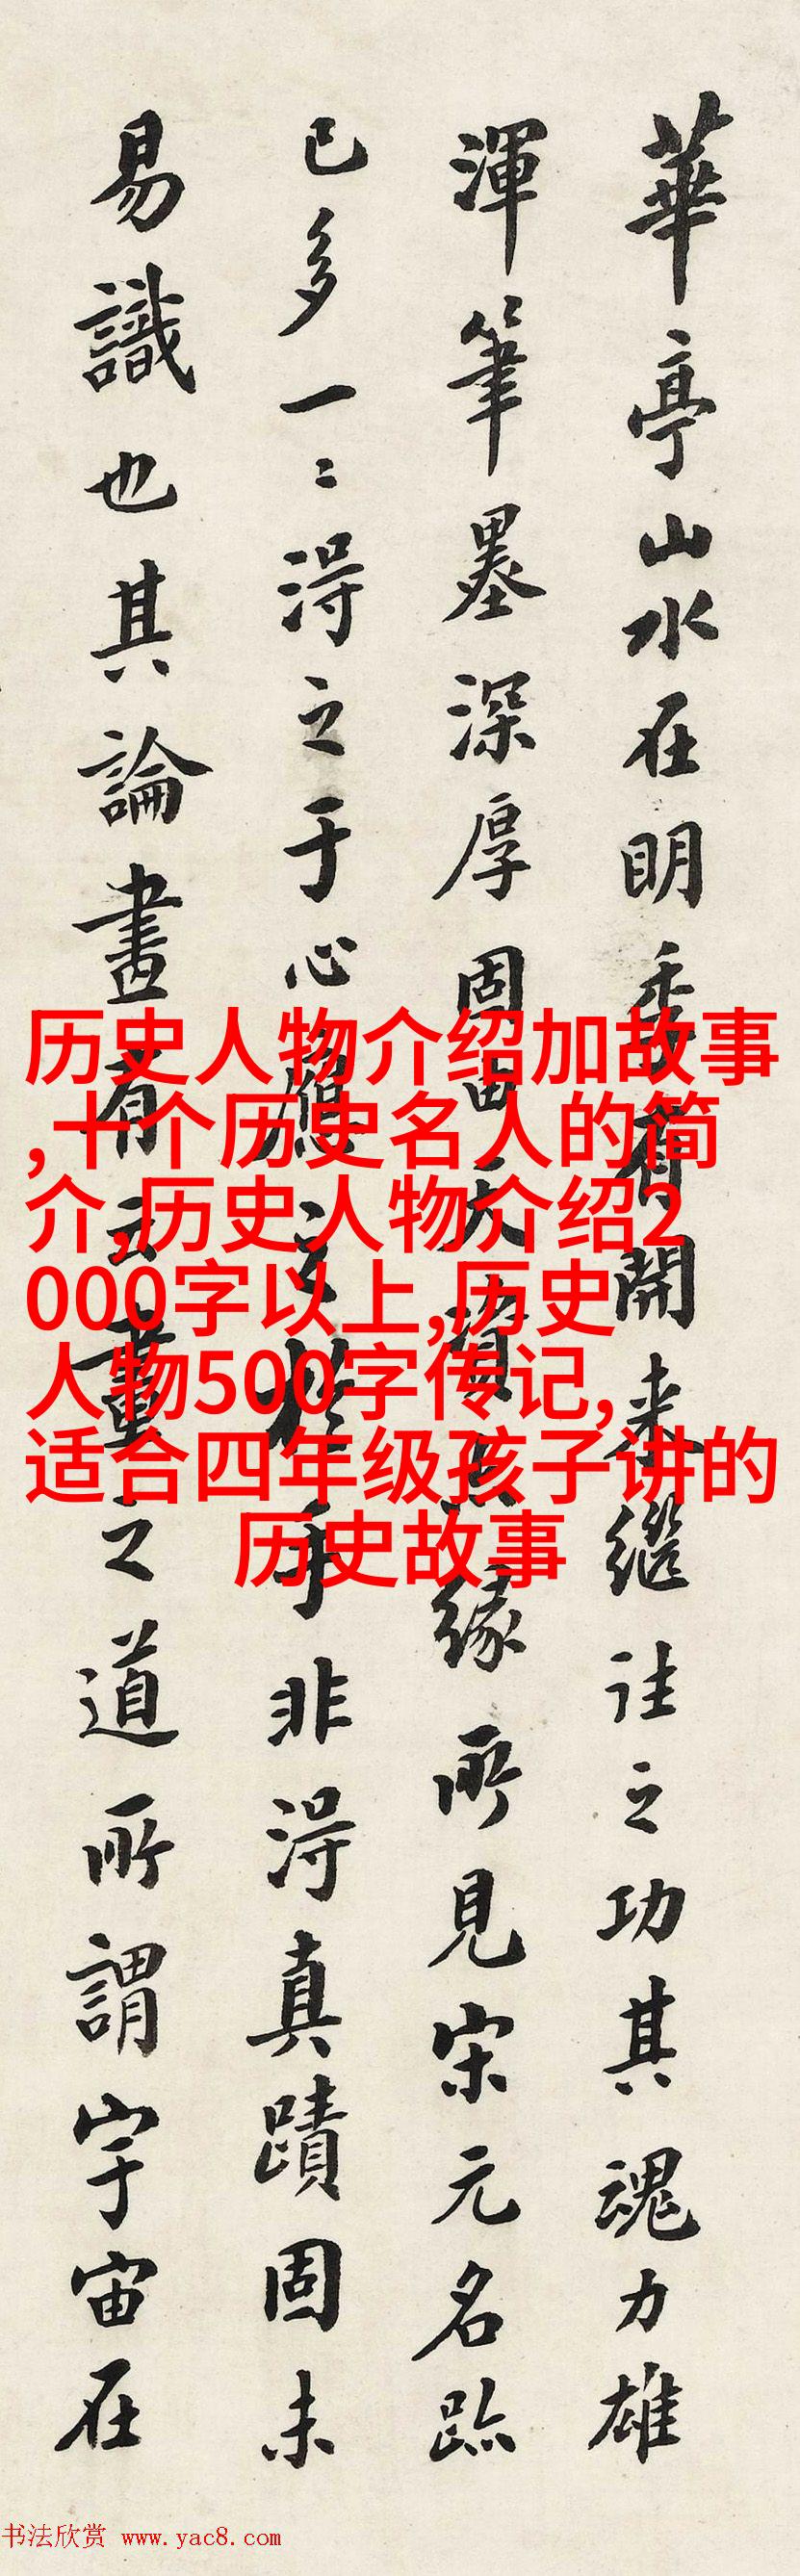 華亭山水在明季有開来繼往之功其魂力雄
渾筆墨深厚固由天資緣所見宋元名跡
已多一二得之于心應之於手非得真蹟固未
易識也其論畫有云畫之道所謂宇宙在
历史人物介绍加故事
,十个历史名人的简
介,历史人物介绍2
000字以上,历史
人物500字传记,
适合四年级孩子讲的
历史故事
书法欣赏 www.yac8.com